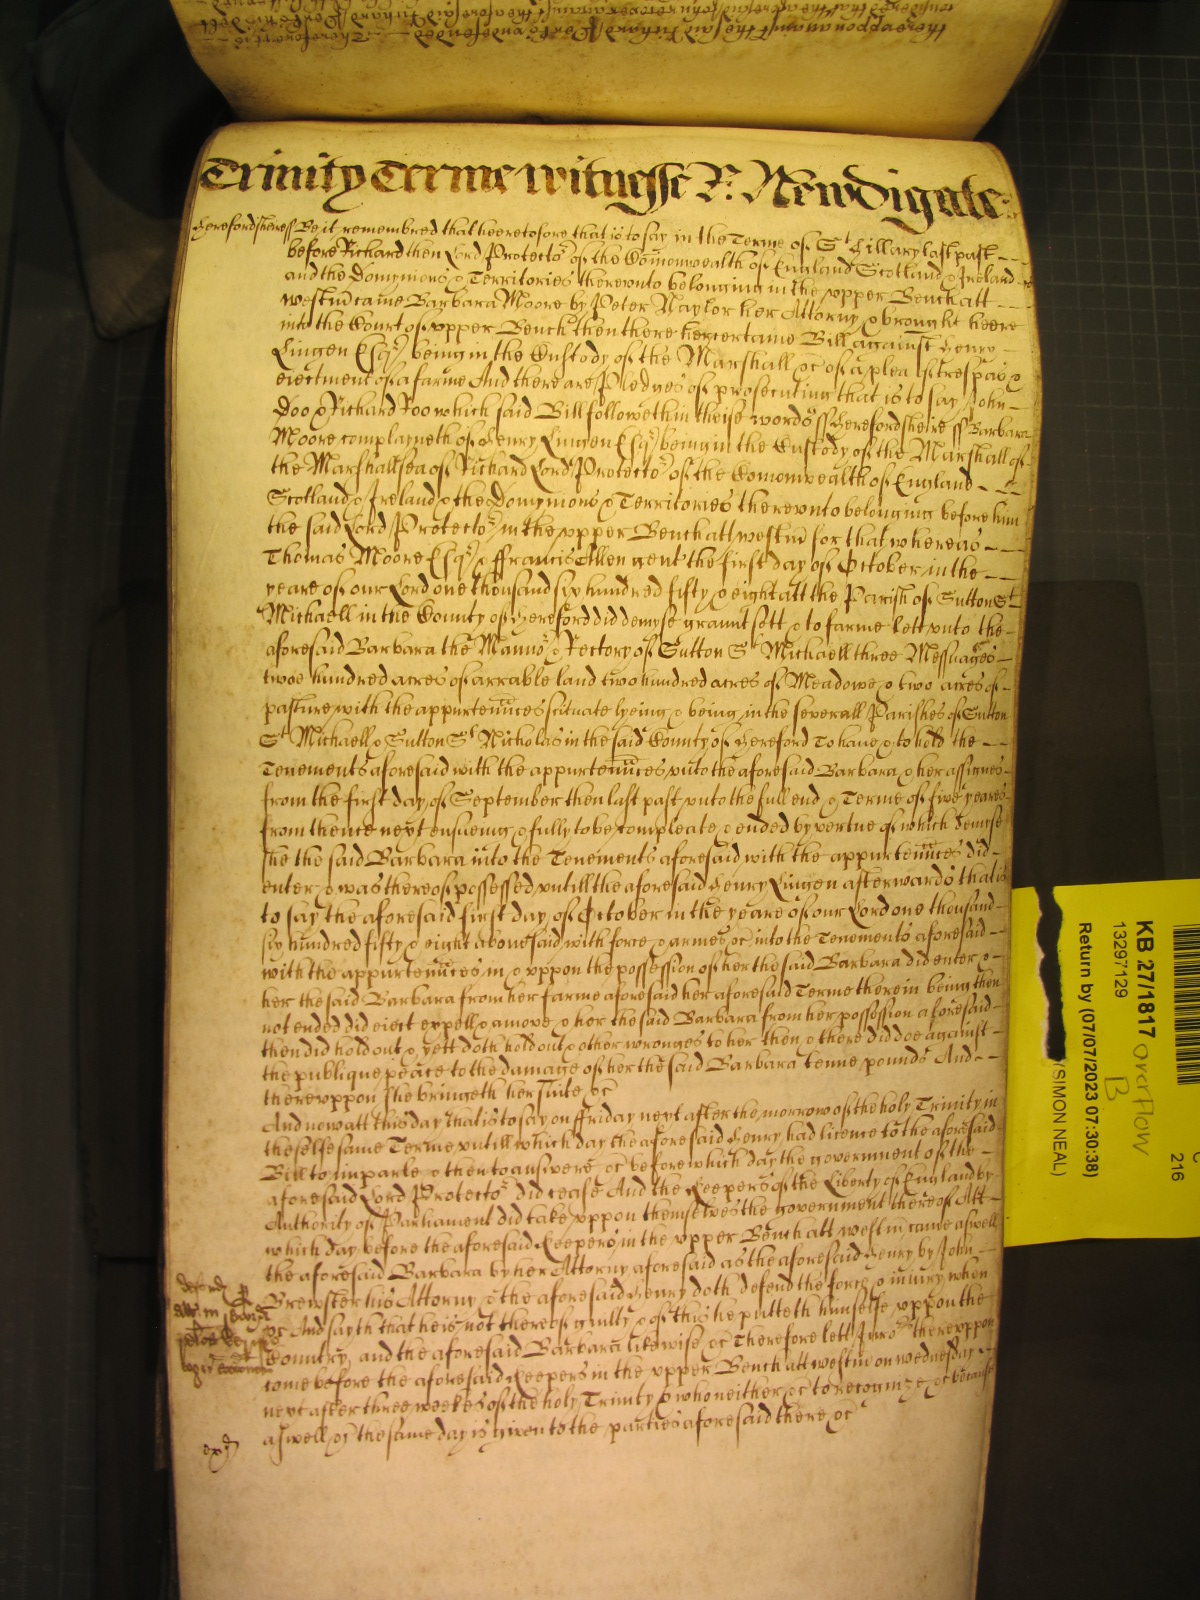 thereuppon against the said Richard
Trinity Terme witnesse R: Newdigate:
Herefordsheire ss Be it remembred that heeretofore that is to say in the Terme of St Hillary last past
before Richard then Lord Protector of the Comonwealth of England Scotland & Ireland
and the Dominyons & Territories thereunto belonging in the upper Bench att
Westm came Barbara Moore by Peter Naylor her Attorny & brought heere
into the Court of upper Bench then there her certaine Bill against Henry
Lingen Esqr being in the Custody of the Marshall &c of a plea of trespas &
eiectment of a farme And there are Pledges of prosecuting that is to say John
Doo & Richard Roo which said Bill followeth in theise words ss Herefordsheire ss Barbara
Moore complayneth of Henry Lingen Esqr being in the Custody of the Marshall of
the Marshallsea of Richard Lord Protector of the Comonwealth of England
Scotland & Ireland & the Dominyons & Territories thereunto belonging before him
the said Lord Protector in the upper Bench att Westm for that whereas
Thomas Moore Esqr & ffrancis Allen gent the first day of October in the
yeare of our Lord one thousand six hundred fifty & eight att the Parish of Sutton St
Michaell in the County of Hereford did demyse graunt sett & to farme lett unto the
aforesaid Barbara the Mannor & Rectory of Sutton St Michaell three Messuages
twoe hundred acres of arrable land two hundred acres of Meadowe & two acres of
pasture with the appurtennces scituate lyeing & being in the severall Parishes of Sutton
St Michaell & Sutton St Nicholas in the said County of Hereford To have & to hold the
Tenements aforesaid with the appurtennces unto the aforesaid Barbara & her assignes
from the first day of September then last past unto the full end & Terme of five yeares
from thence next ensueing & fully to be compleate & ended by vertue of which demyse
she the said Barbara into the Tenements aforesaid with the appurtennces did
enter & was thereof possessed untill the aforesaid Henry Lingen afterwards that is
to say the aforesaid first day of October in the yeare of our Lord one thousand
six hundred fifty & eight abovesaid with force & armes &c into the Tenements aforesaid
with the appurtennces in & uppon the possession of her the said Barbara did enter &
her the said Barbara from her farme aforesaid her aforesaid Terme therein being then
not ended did eiect expell & amove & her the said Barbara from her possession aforesaid
then did hold out & yett doth hold out & other wronges to her then & there did doe against
the publique peace to the damage of her the said Barbara tenne pounds And
thereuppon she bringeth her suite &c
And now att this day that is to say on ffriday next after the morrow of the holy Trinity in
the selfe same Terme untill which day the aforesaid Henry had licence to the aforesaid
Bill to imparle & then to answere &c before which day the government of the
aforesaid Lord Protector did cease And the Keepers of the Liberty of England by
Authority of Parliament did take uppon themselves the government thereof Att
which day before the aforesaid Keepers in the upper Bench att Westm came aswell
the aforesaid Barbara by her Attorny aforesaid as the aforesaid Henry by John
Brewster his Attorny & the aforesaid Henry doth defend the force & iniury when
&c And sayth that he is not thereof guilty & of this he putteth himselfe uppon the
Country, and the aforesaid Barbara likewise &c Therefore lett a Jury thereuppon
come before the aforesaid Keepers in the upper Bench att Westm on wednesday
next after three weekes of the holy Trinity & who neither &c to recognize &c because
aswell &c the same day is given to the parties aforesaid there &c
KB 27/1817 overflow
B
13297129
Return by (07/07/2023 07:30:38)
(SIMON NEAL)
216